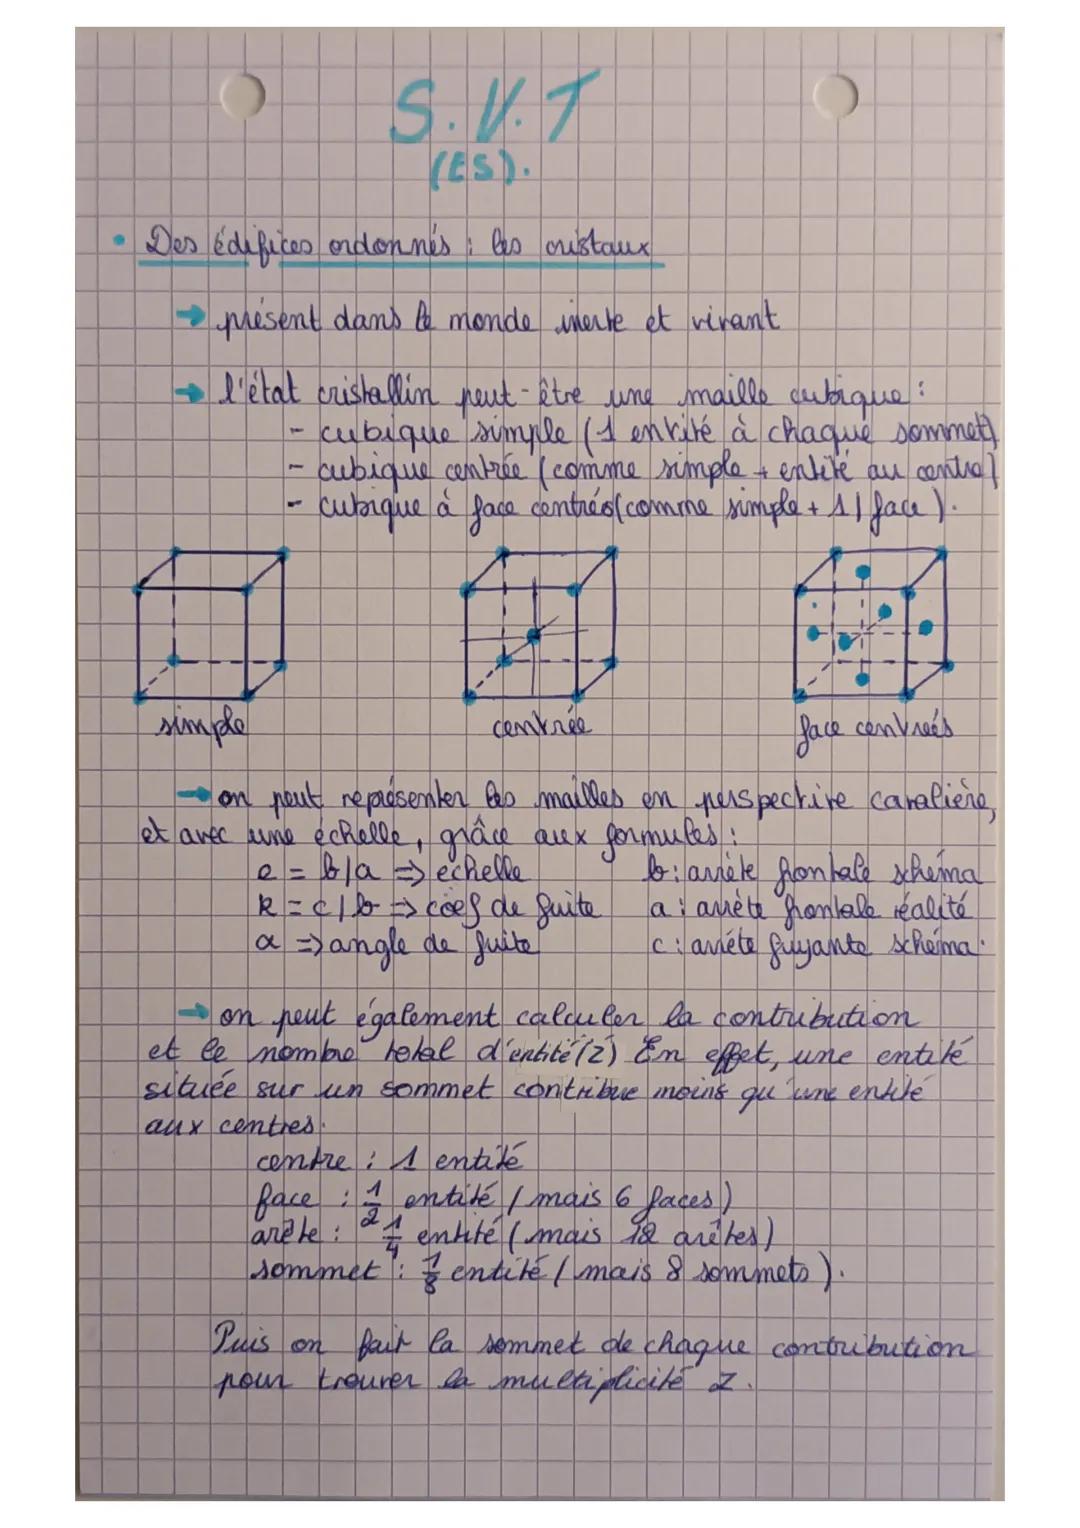 S.V.T
(ES).
• Des édifices ordonnés : les cristaux
→ présent dans le monde inerte et vivant
→ l'état cristallin peut-être une maille cubique :
- cubique simple (1 entité à chaque sommet)
- cubique centrée (comme simple + entité au centre)
- cubique à face centrés (comme simple + 1 / face).
simple
centrée
face centreés
→ on peut représenter les mailles en perspective cavalière,
et avec une échelle, grâce aux formules :
e = b/a => échelle
b : arrête frontale schéma
k = c/b => coef de fuite
a : arrête frontale réalité
α => angle de fuite
c : arrête fuyante schéma.
→ on peut également calculer la contribution
et le nombre total d'entité (Z) En effet, une entité
située sur un sommet contribue moins qu'une entité
aux centres.
centre : 1 entité
face : 1/2 entité (mais 6 faces)
arête : 1/4 entité (mais 12 arêtes)
sommet : 1/8 entité (mais 8 sommets).
Puis on fait la sommet de chaque contribution
pour trouver la multiplicité Z.